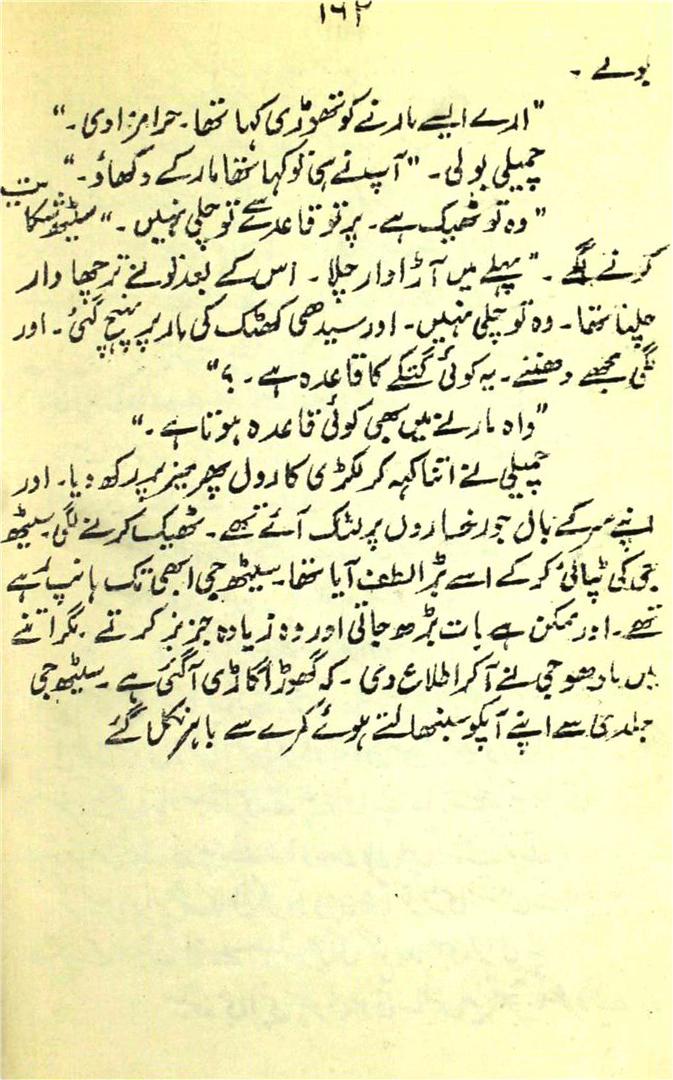 ۱۶۲
بولے ۔
"ارے ایسے مارنے کو تھوڑی کہا تھا۔ حرامزادی۔"
چمپلی بولی۔ "آپ نے ہی تو کہا تھا مار کے دکھاؤ۔"
"وہ تو ٹھیک ہے۔ پر تو قاعدے سے تو چلی نہیں۔" سیٹھ شکایت
کرنے لگے۔ "پہلے میں آڑا وار چلا۔ اس کے بعد تونے ترچھا وار
چلنا تھا۔ وہ تو چلی نہیں۔ اور سیدھی کھٹک کی مار پر پہنچ گئی۔ اور
لگی مجھے دھننے۔ یہ کوئی گتکے کا قاعدہ ہے۔ ؟"
"واہ مارنے میں بھی کوئی قاعدہ ہوتا ہے۔"
چمپلی نے اتنا کہہ کر لکڑی کا رول پھر میز پر رکھ دیا۔ اور
اپنے سر کے بال جو رخساروں پر لٹک آئے تھے۔ ٹھیک کرنے لگی۔ سیٹھ
جی کی ٹپائی کر کے اسے بڑا لطف آیا تھا۔ سیٹھ جی ابھی تک ہانپ رہے
تھے۔ اور ممکن ہے بات بڑھ جاتی اور وہ زیادہ جزبز کرتے۔ مگر اتنے
میں مادھو جی نے آ کر اطلاع دی۔ کہ گھوڑا گاڑی آ گئی ہے۔ سیٹھ جی
جلدی سے اپنے آپکو سنبھالتے ہوئے کمرے سے باہر نکل گئے